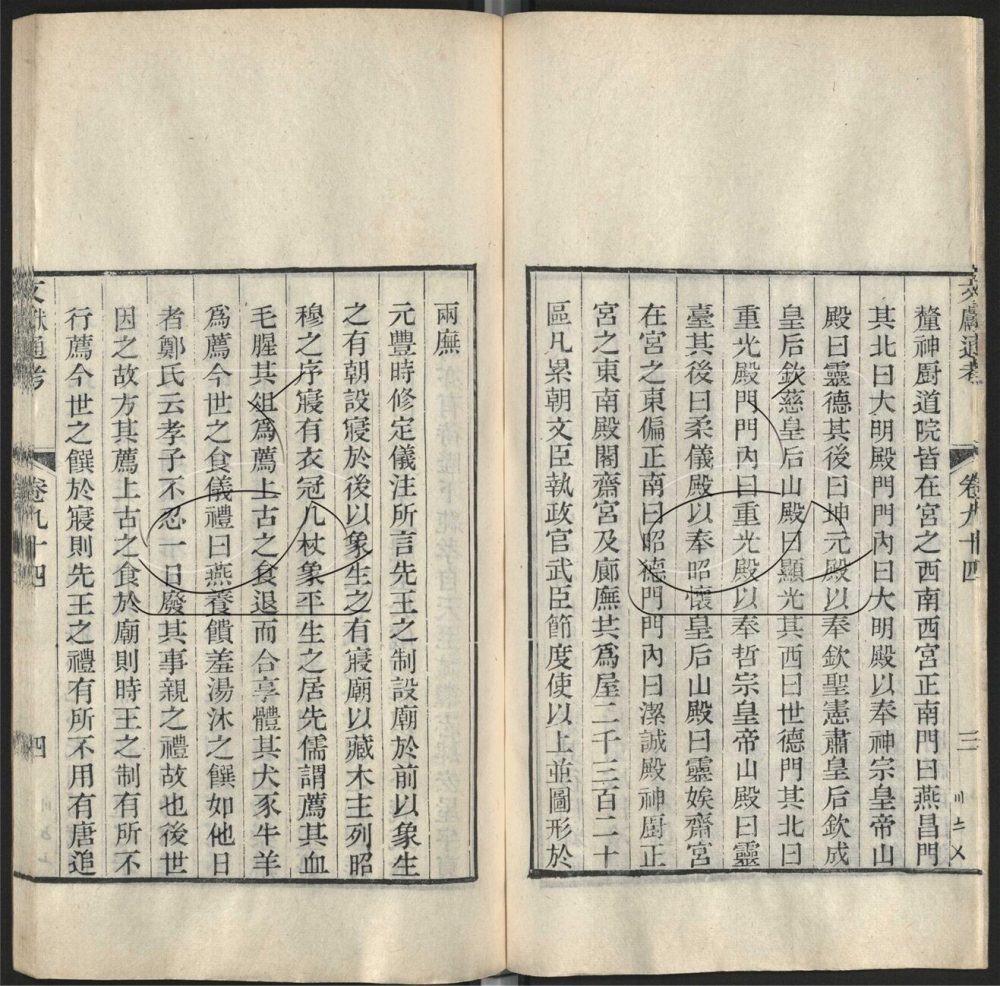 文獻通考　卷九十四　三
釐神厨道院皆在宮之西南西宮正南門曰燕昌門
其北曰大明殿門門內曰大明殿以奉神宗皇帝山
殿曰靈德其後曰坤元殿以奉欽聖憲肅皇后欽成
皇后欽慈皇后山殿曰顯光其西曰世德門其北曰
重光殿門門內曰重光殿以奉哲宗皇帝山殿曰靈
臺其後曰柔儀殿以奉昭懷皇后山殿曰靈娭齋宮
在宮之東偏正南曰昭德門門內曰潔誠殿神厨正
宮之東南殿閣齋宮及廊廡共爲屋二千三百二十
區凡累朝文臣執政官武臣節度使以上並圖形於
兩廡
元豐時修定儀注所言先王之制設廟於前以象生
之有朝設寢於後以象生之有寢廟以藏木主列昭
穆之序寢有衣冠几杖象平生之居先儒謂薦其血
毛腥其俎爲薦上古之食退而合享體其犬豕牛羊
爲薦今世之食儀禮曰燕養饋羞湯沐之饌如他日
者鄭氏云孝子不忍一日廢其事親之禮故也後世
因之故方其薦上古之食於廟則時王之制有所不
行薦今世之饌於寢則先王之禮有所不用有唐追
文獻通考　卷九十四　四